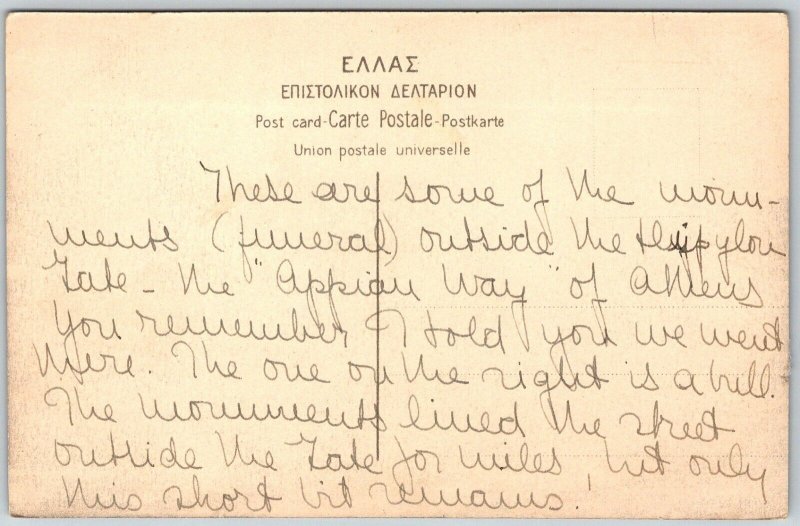 ΕΛΛΑΣ
ΕΠΙΣΤΟΛΙΚΟΝ ΔΕΛΤΑΡΙΟΝ
Post card-Carte Postale-Postkarte
Union postale universelle
These are some of the monu-
ments (funeral) outside the
Gate - the "Appian Way" of Athens
You remember I told you we went
there. The one on the right is a bull.
The monuments lined the street
outside the Gate for miles, but only
this short bit remains.